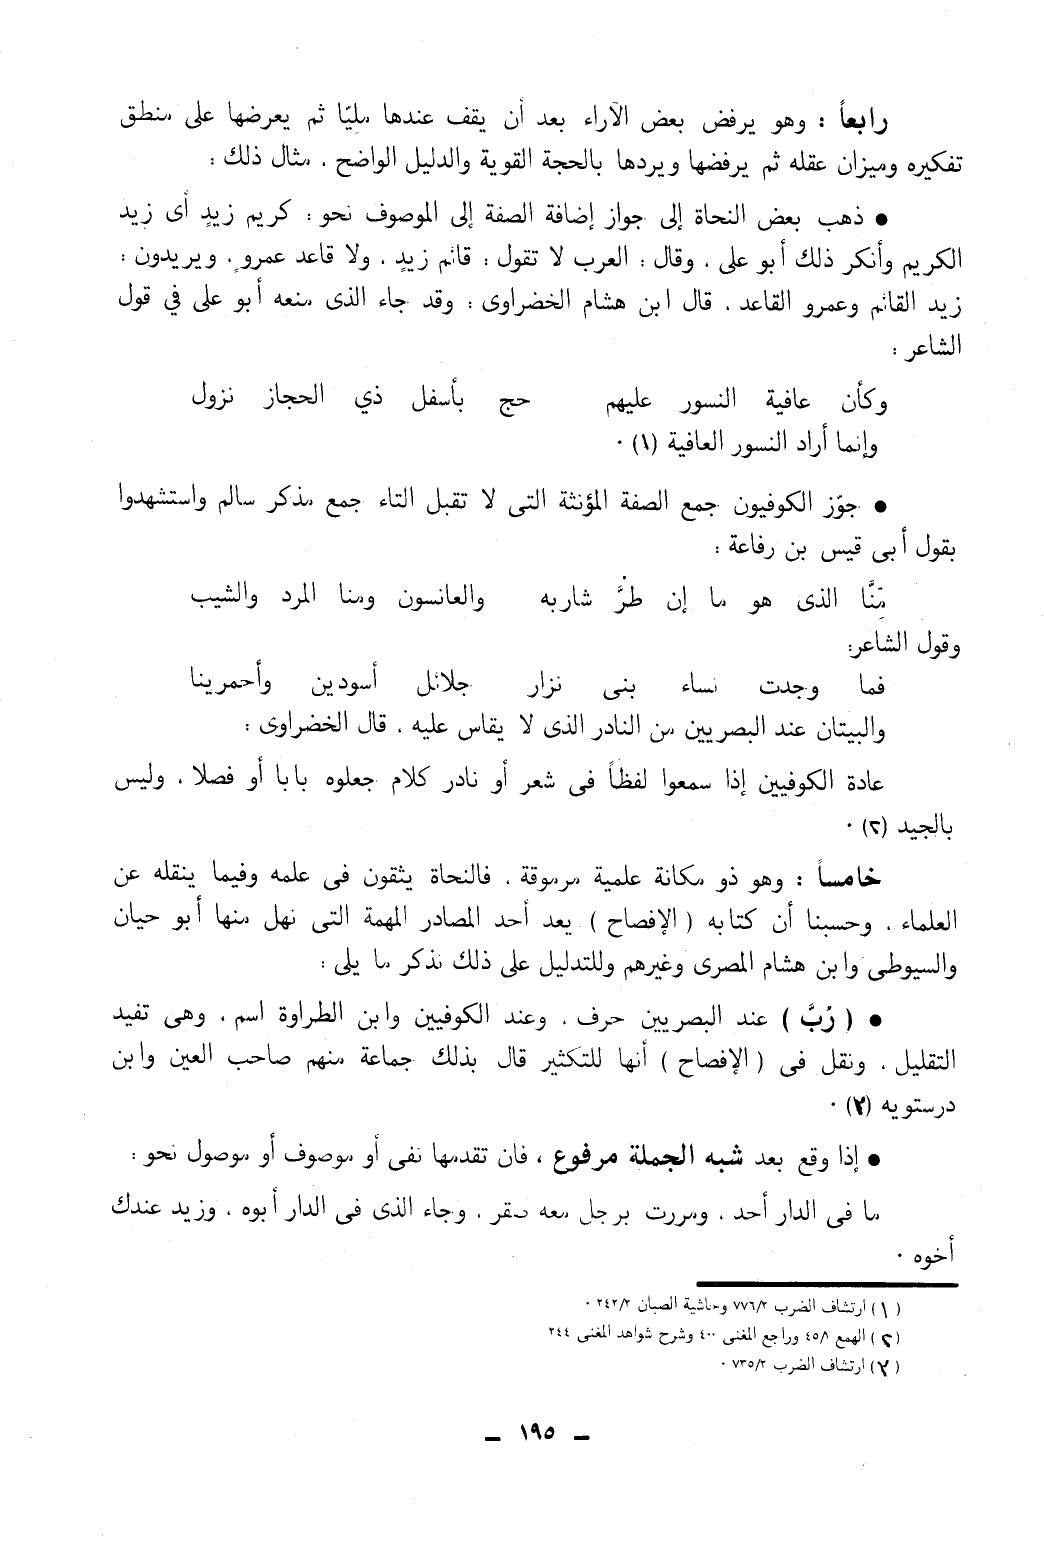 رابعاً : وهو يرفض بعض الآراء بعد أن يقف عندها مليّا ثم يعرضها على منطق
تفكيره وميزان عقله ثم يرفضها ويردها بالحجة القوية والدليل الواضح . مثال ذلك :
● ذهب بعض النحاة إلى جواز إضافة الصفة إلى الموصوف نحو : كريم زيدٍ أى زيد
الكريم وأنكر ذلك أبو على . وقال : العرب لا تقول : قائم زيدٍ . ولا قاعد عمرو . ويريدون :
زيد القائم وعمرو القاعد . قال ابن هشام الخضراوى : وقد جاء الذى منعه أبو على في قول
الشاعر :
وكأن عافية النسور عليهم حج بأسفل ذي الحجاز نزول
وإنما أراد النسور العافية (١) ٠
● جوّز الكوفيون جمع الصفة المؤنثة التى لا تقبل التاء جمع مذكر سالم واستشهدوا
بقول أبى قيس بن رفاعة :
مِنَّا الذى هو ما إن طرَّ شاربه والعانسون ومنا المرد والشيب
وقول الشاعر:
فما وجدت نساء بنى نزار جلائل أسودين وأحمرينا
والبيتان عند البصريين من النادر الذى لا يقاس عليه . قال الخضراوى :
عادة الكوفيين إذا سمعوا لفظاً فى شعر أو نادر كلام جعلوه بابا أو فصلا . وليس
بالجيد (٢) ٠
خامساً : وهو ذو مكانة علمية مرموقة . فالنحاة يثقون فى علمه وفيما ينقله عن
العلماء . وحسبنا أن كتابه ( الإفصاح ) يعد أحد المصادر المهمة التى نهل منها أبو حيان
والسيوطى وابن هشام المصرى وغيرهم وللتدليل على ذلك نذكر ما يلى :
● ( رُبَّ ) عند البصريين حرف . وعند الكوفيين وابن الطراوة اسم . وهى تفيد
التقليل . ونقل فى ( الإفصاح ) أنها للتكثير قال بذلك جماعة منهم صاحب العين وابن
درستويه (٣) ٠
● إذا وقع بعد شبه الجملة مرفوع ، فان تقدمها نفى أو موصوف أو موصول نحو :
ما فى الدار أحد . ومررت برجل معه صقر . وجاء الذى فى الدار أبوه . وزيد عندك
أخوه ٠
(١) ارتشاف الضرب ٧٧٦/٢ وحاشية الصبان ٢٤٢/٢ ٠
(٢) الهمع ٤٥/١ وراجع المغنى ٤٠٠ وشرح شواهد المغنى ٢٤٤
(٣) ارتشاف الضرب ٧٣٥/٢ ٠
ـ ١٩٥ ـ